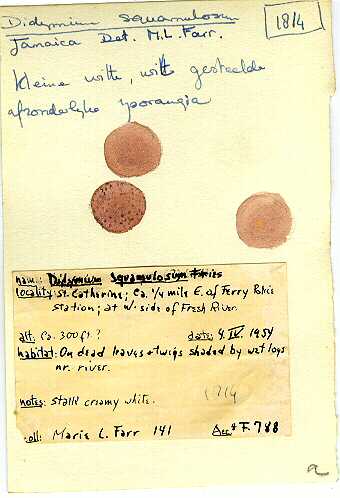 Didymium squamulosum
1814
Jamaica Det. M.L. Farr.
kleine witte, wit gesteelde
afzonderlijke sporangia
name: Didymium squamulosum Fries
locality: St. Catherine; Ca. 1/4 mile E. of Ferry Police
station; at W. side of Fresh River.
alt: Ca. 300 ft.? date: 4. IV. 1954
habitat: On dead leaves + twigs shaded by wet logs
nr. river.
notes: Stalk creamy white. 1814
coll: Marie L. Farr 141 Acc# F. 788
a